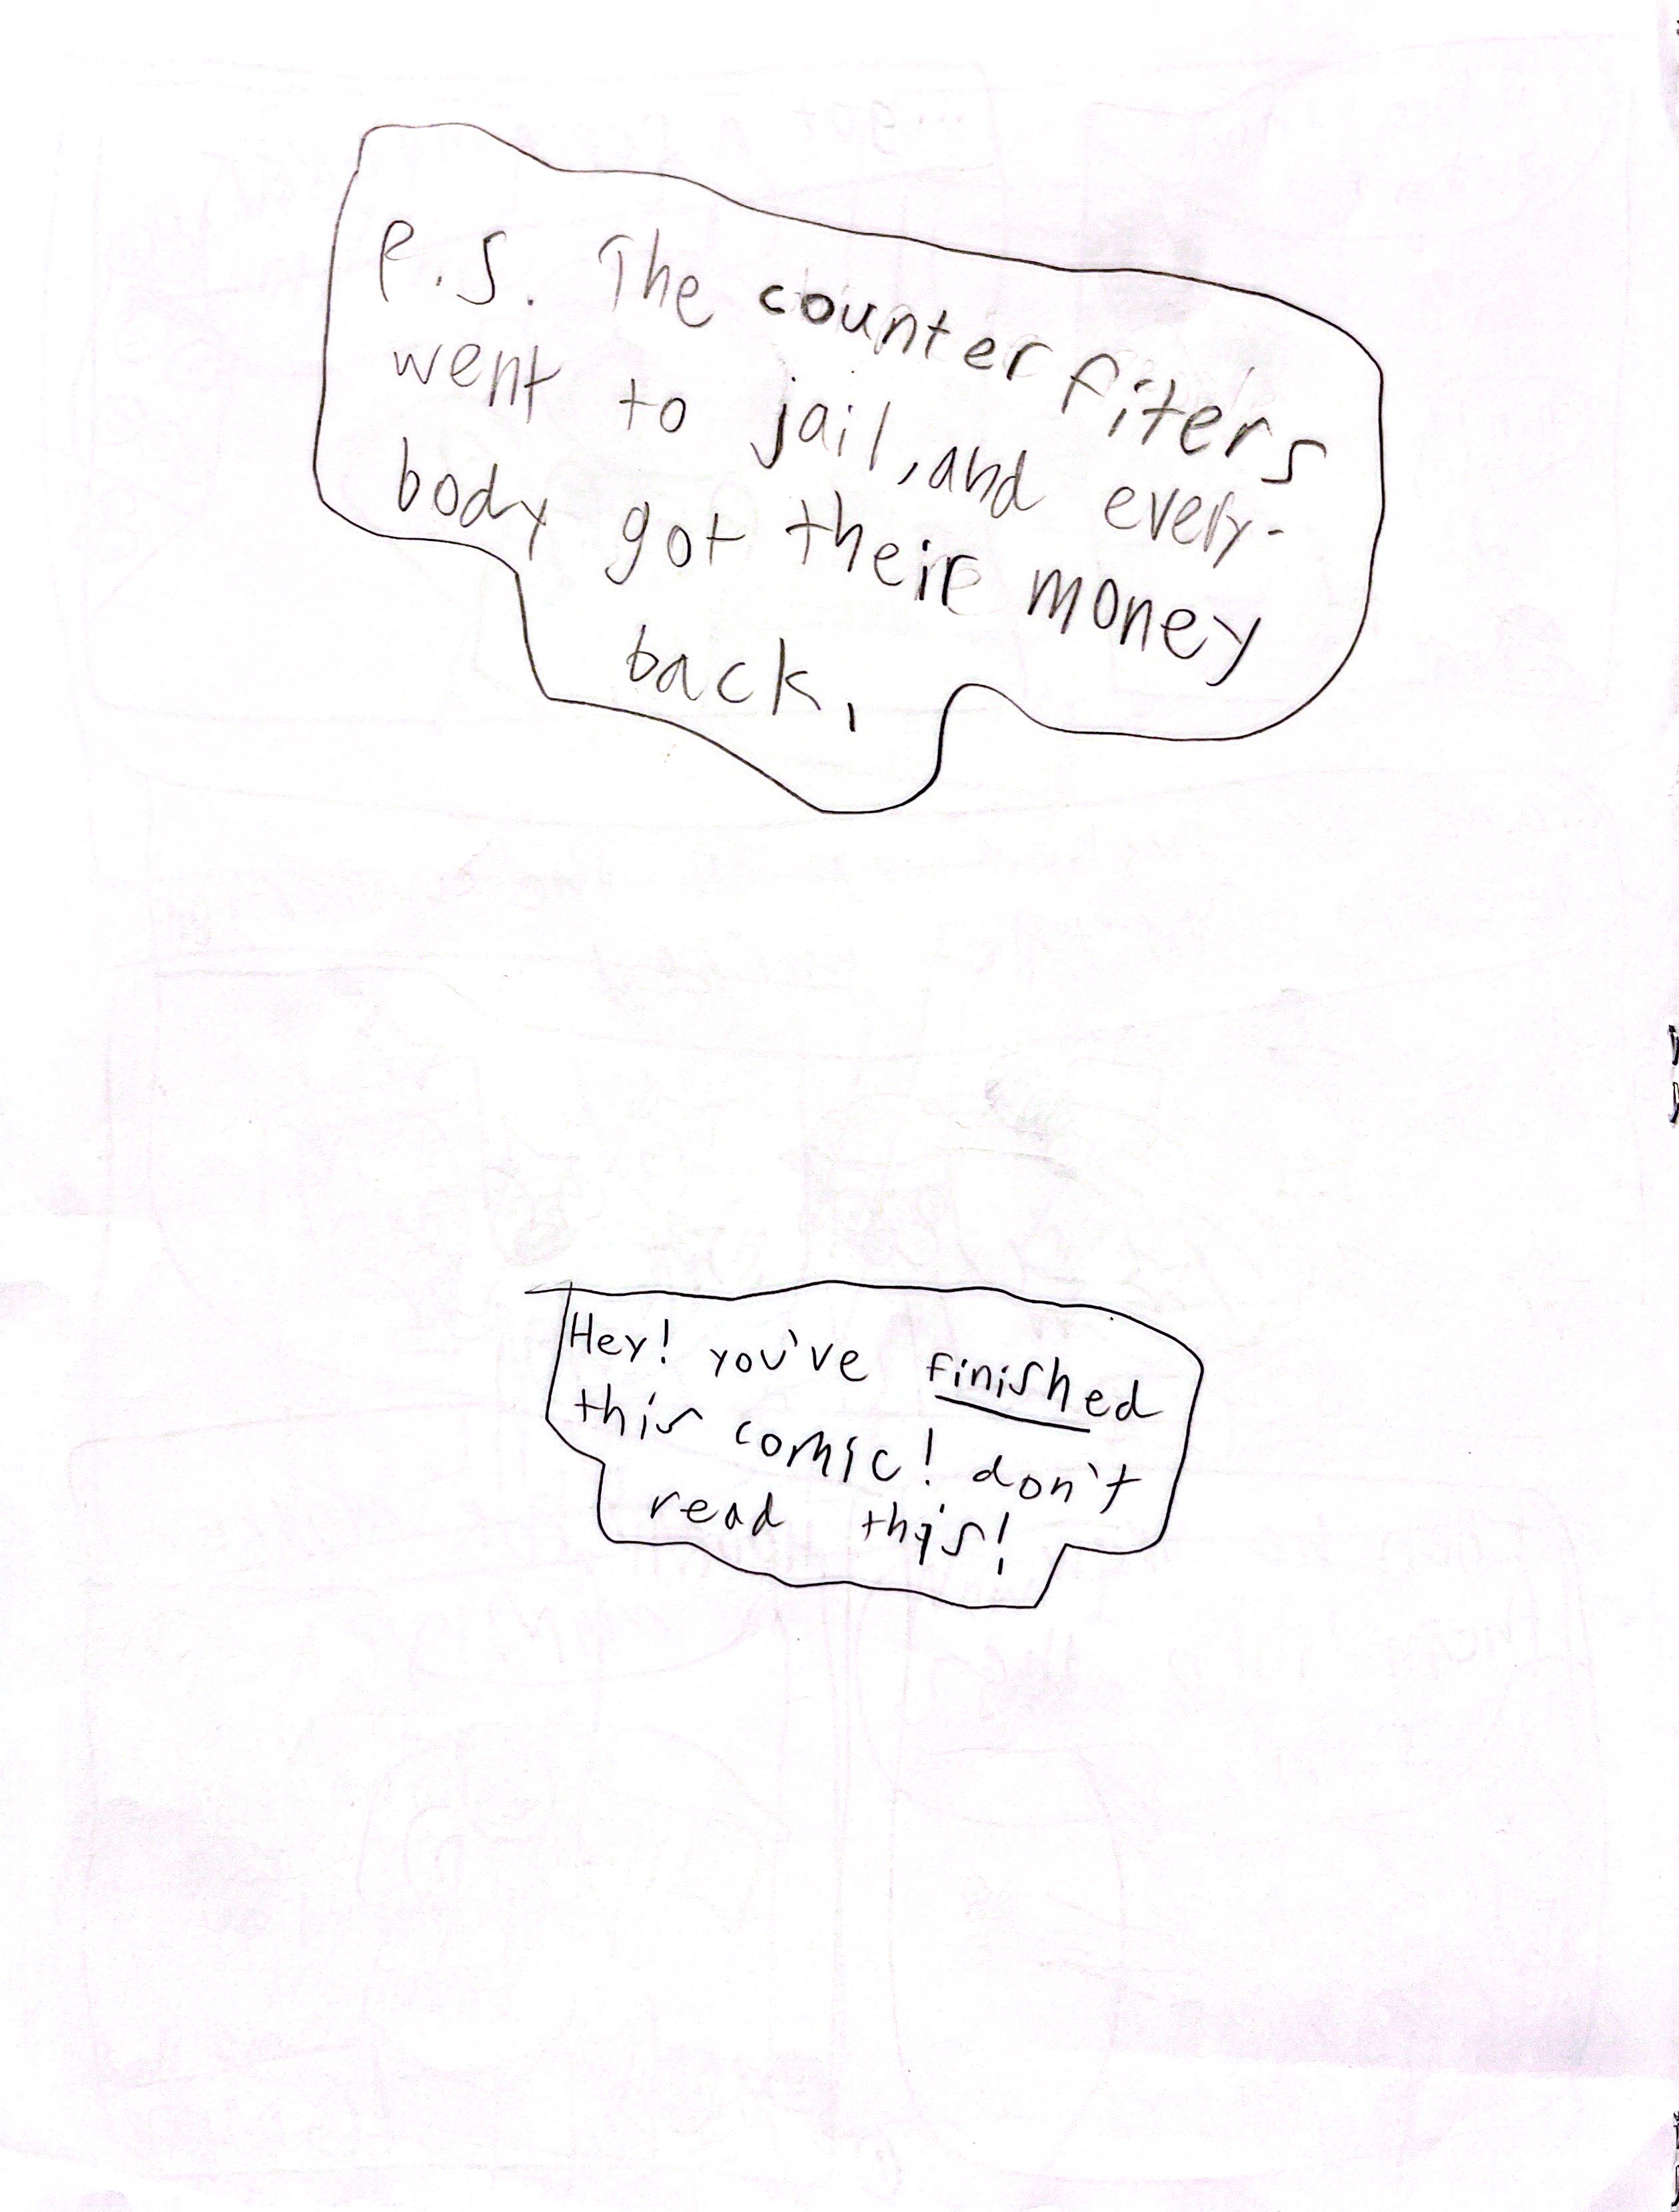 P.S. The counterfiters
went to jail, and every-
body got their money
back.
Hey! you've finished
this comic! don't
read this!